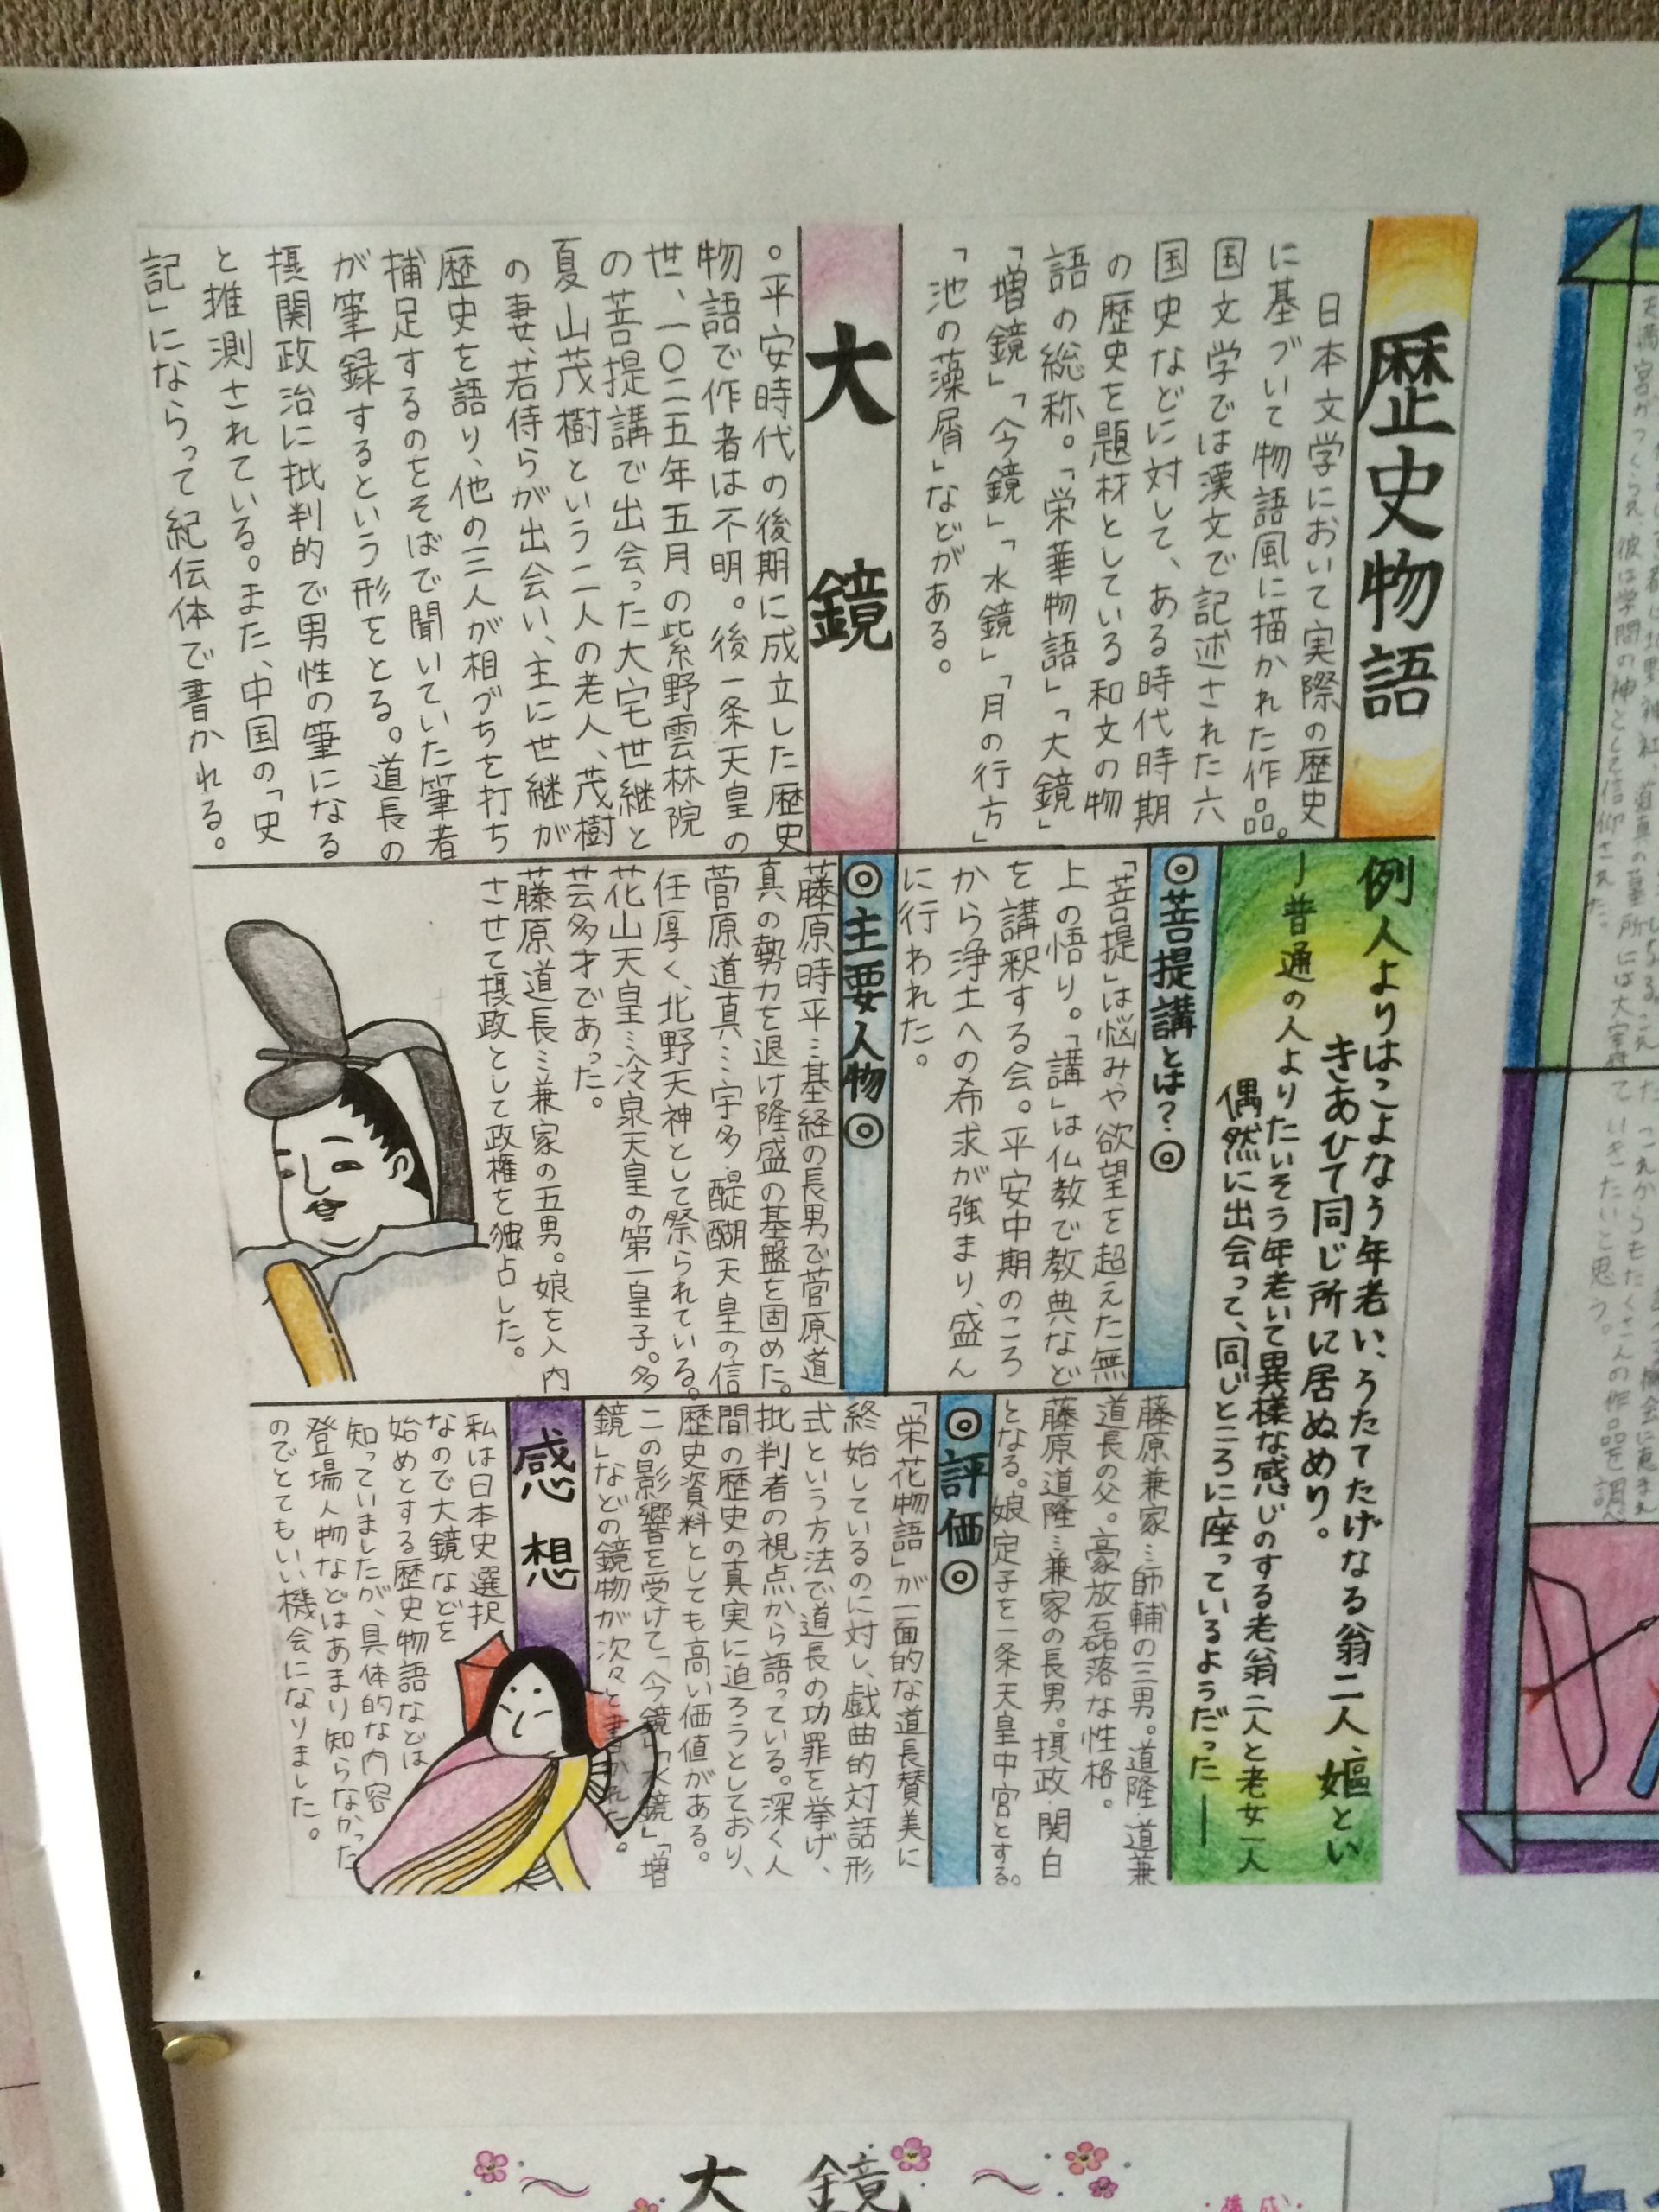 歴史物語
日本文学において実際の歴史
に基づいて物語風に描かれた作品。
国文学では漢文で記述された六
国史などに対して、ある時代時期
の歴史を題材としている和文の物
語の総称。「栄華物語」「大鏡」
「増鏡」「今鏡」「水鏡」「月の行方」
「池の藻屑」などがある。
大鏡
。平安時代の後期に成立した歴史
物語で作者は不明。後一条天皇の
世、一〇二五年五月の紫野雲林院
の菩提講で出会った大宅世継と
夏山茂樹という二人の老人、茂樹
の妻、若侍らが出会い、主に世継が
歴史を語り、他の三人が相づちを打ち
補足するのをそばで聞いていた筆者
が筆録するという形をとる。道長の
摂関政治に批判的で男性の筆になる
と推測されている。また、中国の「史
記」にならって紀伝体で書かれる。
例人よりはこよなう年老い、うたてたげなる翁二人、嫗とい
きあひて同じ所に居ぬめり。
ー普通の人よりたいそう年老いて異様な感じのする老翁二人と老女一人
偶然に出会って、同じところに座っているようだったー
◎菩提講とは?◎
「菩提」は悩みや欲望を超えた無
上の悟り。「講」は仏教で教典など
を講釈する会。平安中期のころ
から浄土への希求が強まり、盛ん
に行われた。
◎主要人物◎
藤原時平…基経の長男で菅原道
真の勢力を退け隆盛の基盤を固めた。
菅原道真…宇多・醍醐天皇の信
任厚く、北野天神として祭られている。
花山天皇…冷泉天皇の第一皇子。多
芸多才であった。
藤原道長…兼家の五男。娘を入内
させて摂政として政権を独占した。
藤原兼家…師輔の三男。道隆・道兼
道長の父。豪放磊落な性格。
藤原道隆…兼家の長男。摂政・関白
となる。娘定子を一条天皇中宮とする。
◎評価◎
「栄花物語」が一面的な道長賛美に
終始しているのに対し、戯曲的対話形
式という方法で道長の功罪を挙げ、
批判者の視点から語っている。深く人
間の歴史の真実に迫ろうとしており、
歴史資料としても高い価値がある。
この影響を受けて、「今鏡」「水鏡」「増
鏡」などの鏡物が次々と書かれた。
感想
私は日本史選択
なので大鏡などを
始めとする歴史物語などは
知っていましたが、具体的な内容
登場人物などはあまり知らなかった
のでとてもいい機会になりました。
彼は学問の神として信仰された。
ていきたいと思う。
大鏡